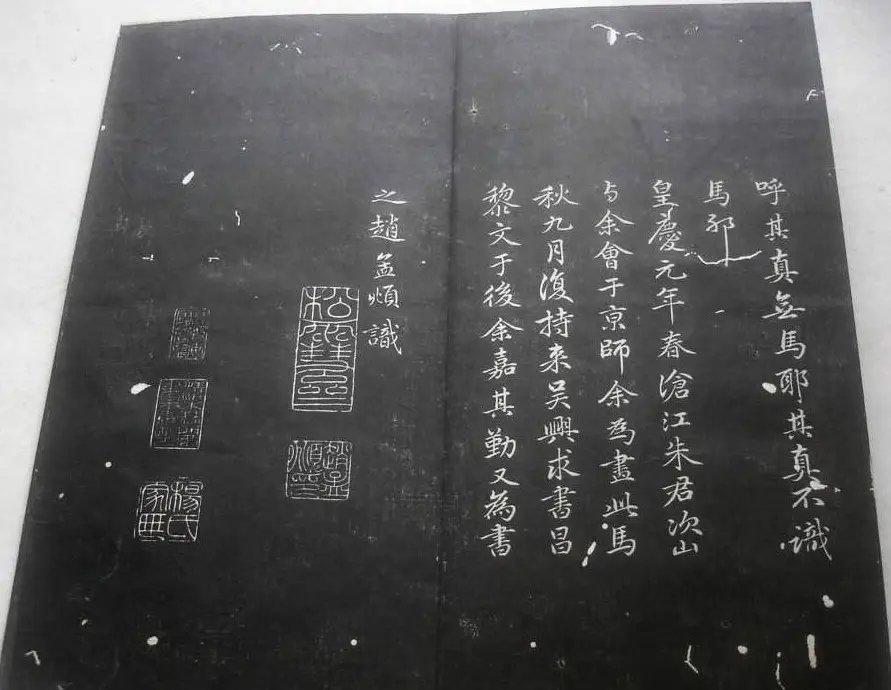 呼其真無馬耶其真不識
馬邪
皇慶元年春滄江朱君次山
与余會于京師余為畫此馬
秋九月復持来吴興求書昌
黎文于後余嘉其勤又為書
之趙孟頫識
松雪齋
趙孟頫印
楊氏家